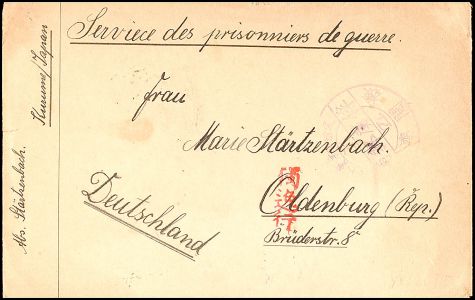 Serviece des prisonniers de guerre.
Frau
Marie Stärtzenbach.
Oldenburg (Rep.)
Brüderstr. 8
Deutschland
Abs. Stärzenbach.
Kurume/Japan